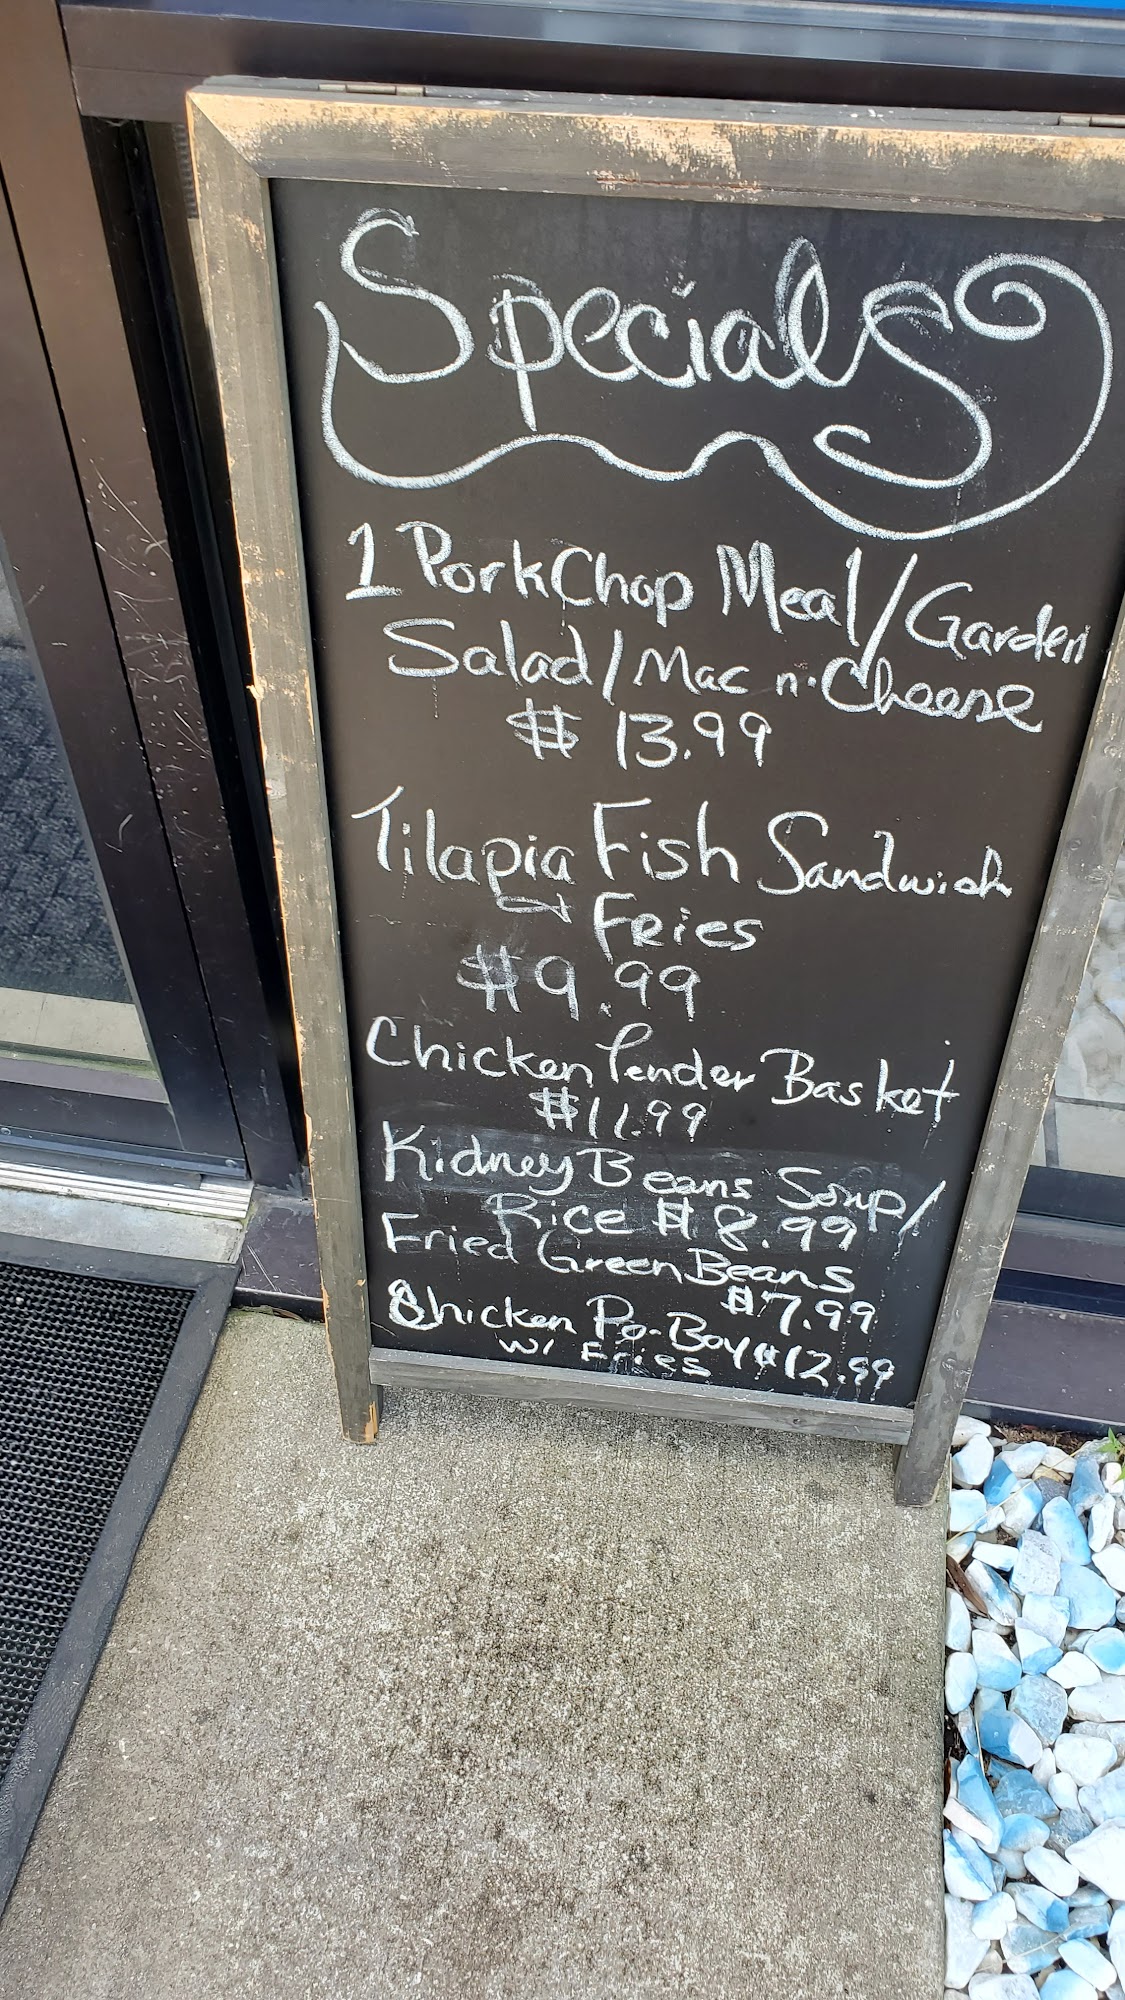 Specials
1 Pork Chop Meal/Garden
Salad/Mac n. Cheese
$ 13.99
Tilapia Fish Sandwich
Fries
$9.99
Chicken Tender Basket
$11.99
Kidney Beans Soup/
Rice $8.99
Fried Green Beans
$7.99
Chicken Po-Boy $12.99
w/ Fries